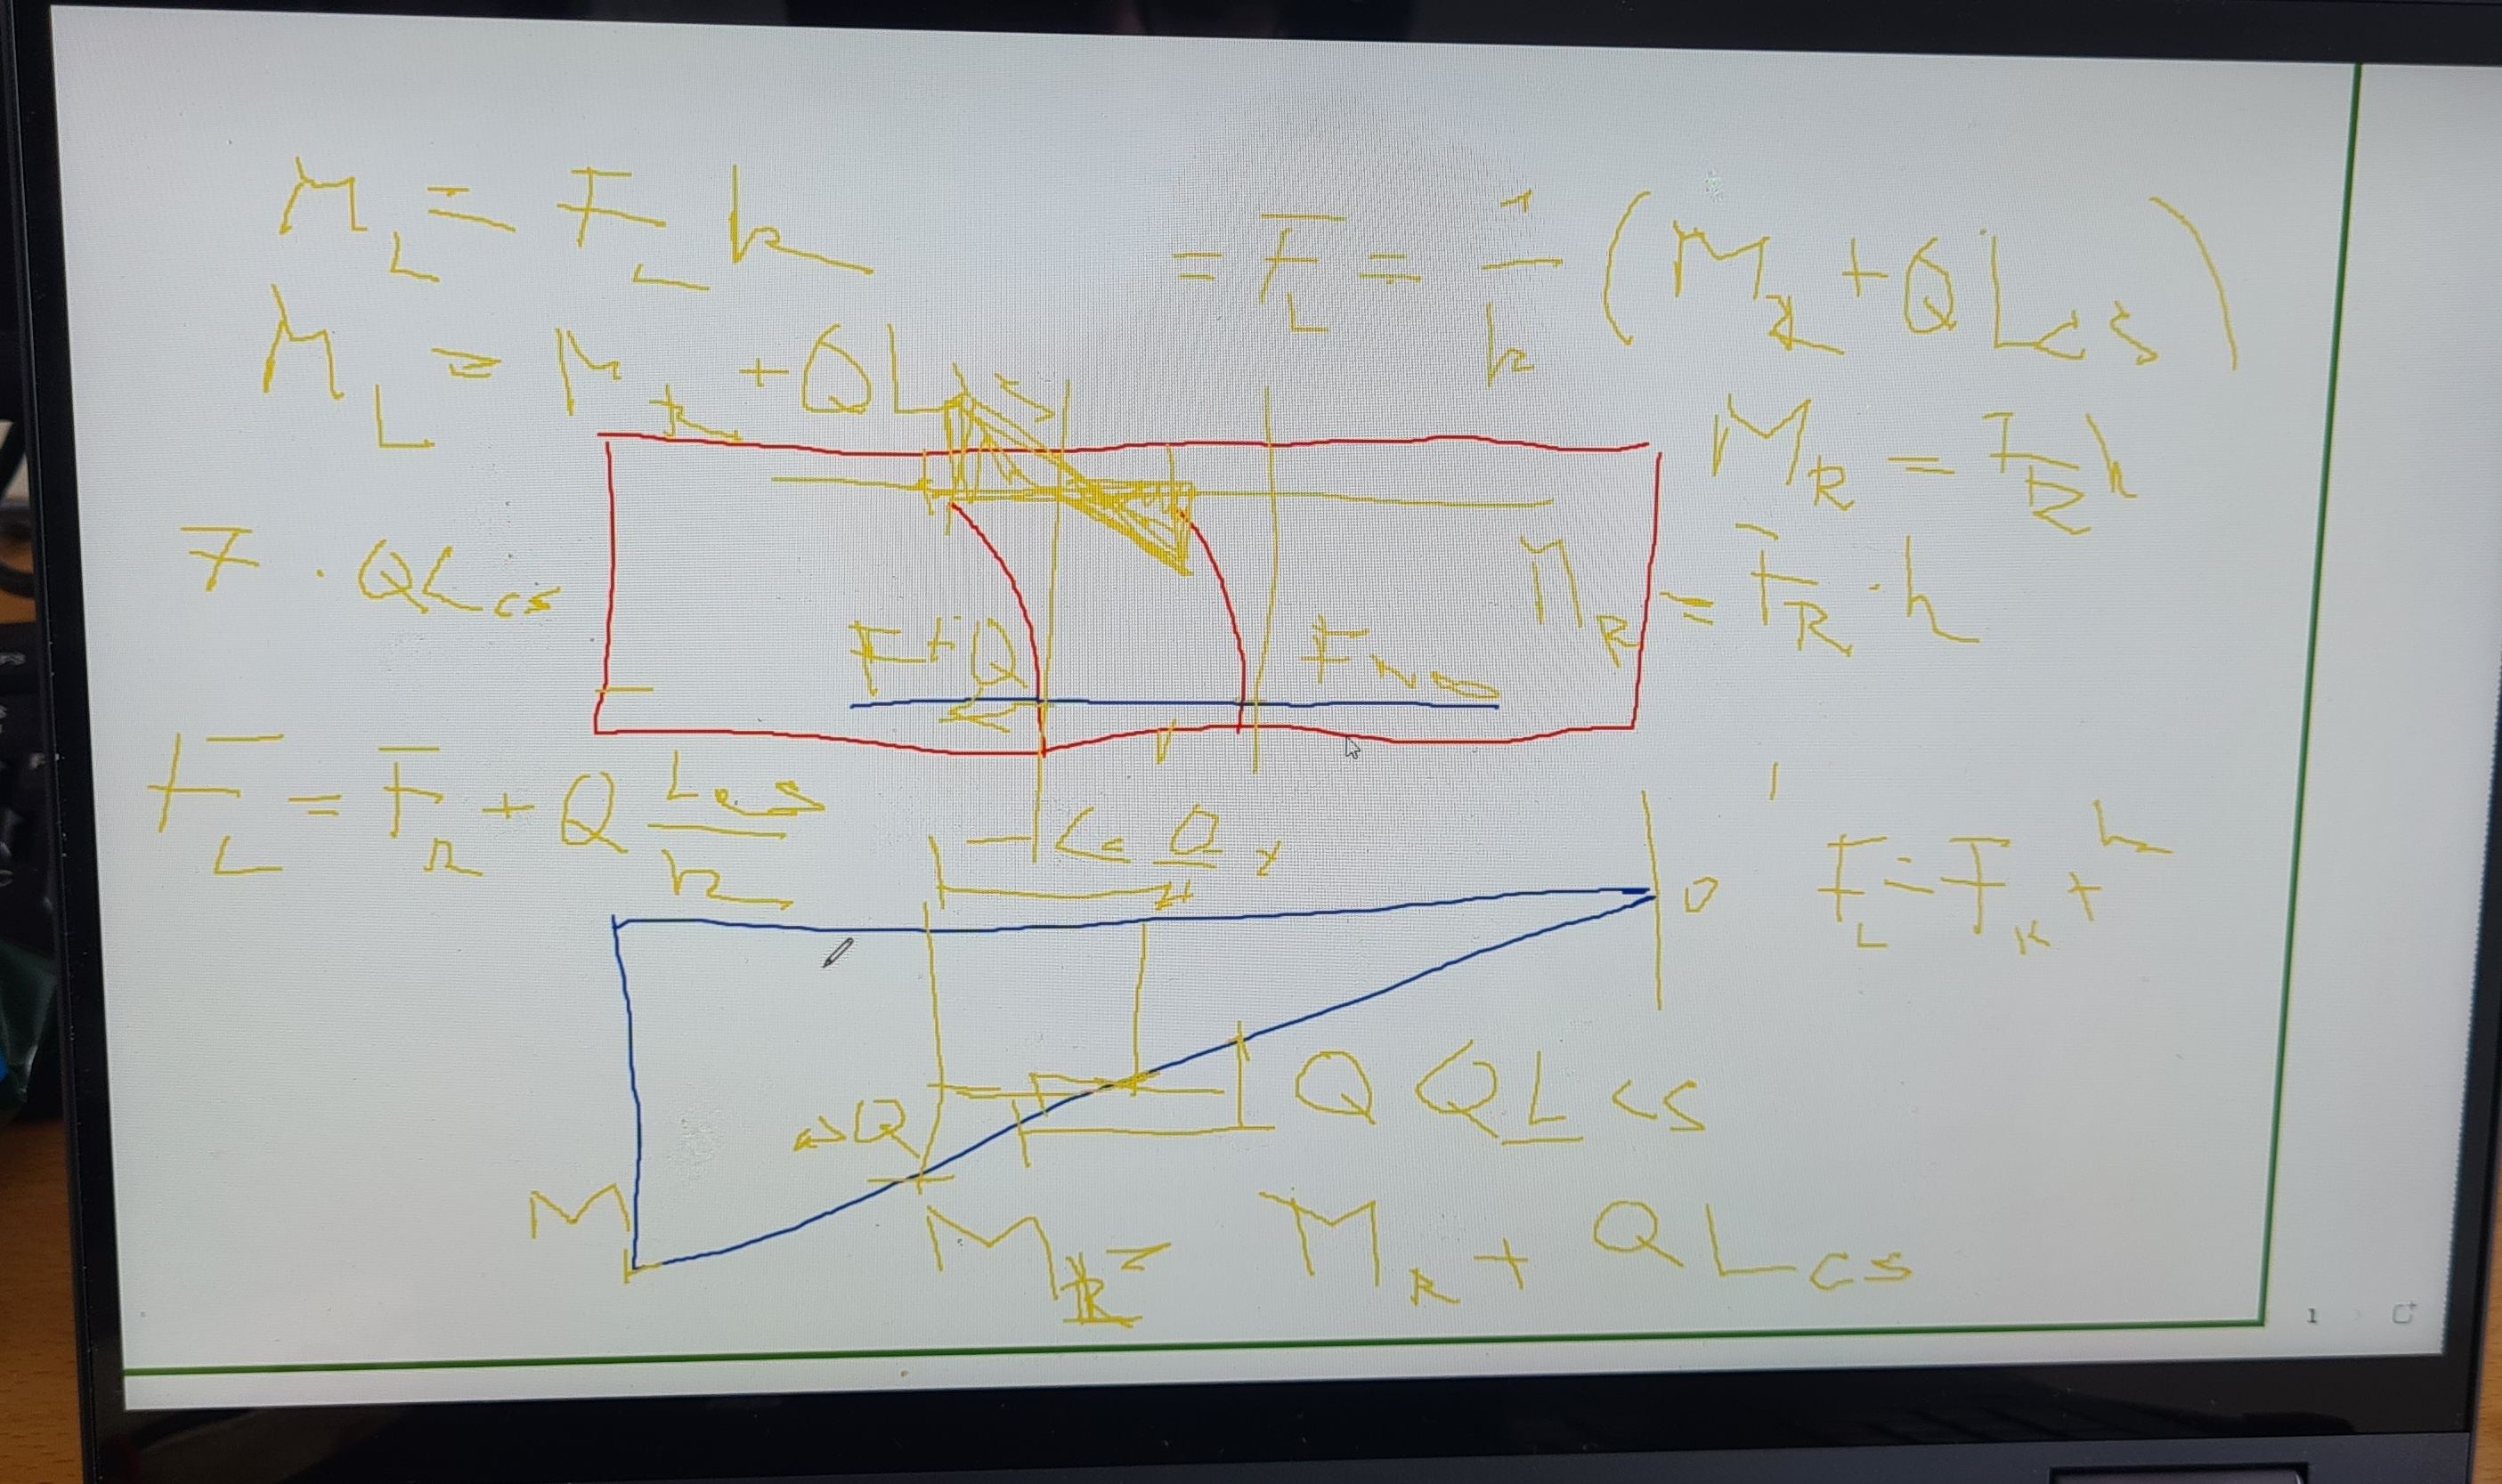 M_L = F_L h
= F_L = 1/h (M_R + Q L_cs)
M_L = M_R + Q L_cs
M_R = F_R h
7 · Q L_cs
M_R = F_R · h
F + Q
F
F_L = F_R + Q L_cs/h
0
F_L = F_R + h
Q
Q L cs
Q
M_L
M_R =
M_R + Q L_cs
1